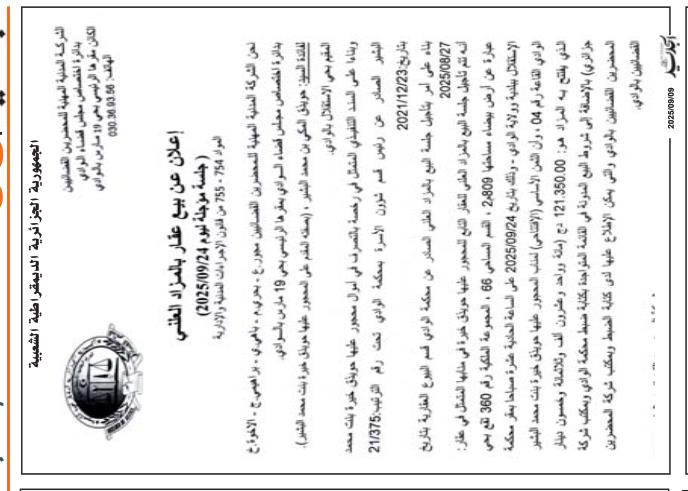 الجمهورية الجزائرية الديمقراطية الشعبية
الشركة المدنية المهنية للمحضرين القضائيين
بدائرة اختصاص مجلس قضاء الوادي
الكائن مقرها الرئيسي بحي 19 مارس بالوادي
الهاتف: 030.36.93.56
إعلان عن بيع عقار بالمزاد العلني
(جلسة مؤجلة ليوم 2025/09/24)
المواد 754 - 755 من قانون الإجراءات المدنية والإدارية
نحن الشركة المدنية المهنية للمحضرين القضائيين مجور.ع - بحري.م - باهي.ي - براهيمي.ج - الاخوة.خ
بدائرة اختصاص مجلس قضاء الوادي بمقرها الرئيسي بحي 19 مارس بالوادي.
لفائدة السيد: حويذق المكي بن محمد البشير، (بصفته المقدم على المحجور عليها حويذق خيرة بنت محمد البشير).
المقيم بحي الاستقلال بالوادي.
وبناءا على السند التنفيذي المتمثل في رخصة بالتصرف في أموال محجور عليها حويذق خيرة بنت محمد
البشير الصادر عن رئيس قسم شؤون الأسرة بمحكمة الوادي تحت رقم الترتيب: 21/375
بتاريخ: 2021/12/23
بناء على أمر بتأجيل جلسة البيع بالمزاد العلني الصادر عن محكمة الوادي قسم البيوع العقارية بتاريخ
2025/08/27
أنه تم تأجيل جلسة البيع بالمزاد العلني للعقار التابع للمحجور عليها حويذق خيرة في منابها المتمثل في عقار:
عبارة عن أرض بيضاء مساحتها 2,809، القسم المساحي 66، المجموعة الملكية رقم 360 تقع بحي
الاستقلال ببلدية وولاية الوادي - وذلك بتاريخ 2025/09/24 على الساعة الحادية عشرة صباحا بمقر محكمة
الوادي القاعة رقم 04، وأن الثمن الأساسي (الافتتاحي) لمناب المحجور عليها حويذق خيرة بنت محمد البشير
الذي يفتتح به المزاد هو: 121.350.00 دج (مئة وواحد وعشرون ألف وثلاثمائة وخمسون دينار
جزائري) بالإضافة إلى شروط البيع المدونة في القائمة المتواجدة بكتابة ضبط محكمة الوادي وبمكتب شركة
المحضرين القضائيين بالوادي والتي يمكن الإطلاع عليها لدى كتابة الضبط وبمكتب شركة المحضرين
القضائيين بالوادي.
2025/09/09